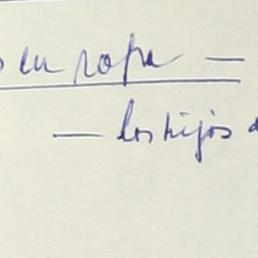 en ropa —
— los hijos